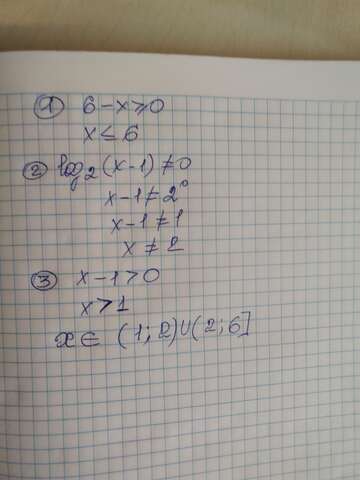 ① 6-x≥0
x≤6
② log₂(x-1)≠0
x-1≠2⁰
x-1≠1
x≠2
③ x-1>0
x>1
x∈(1;2)∪(2;6]